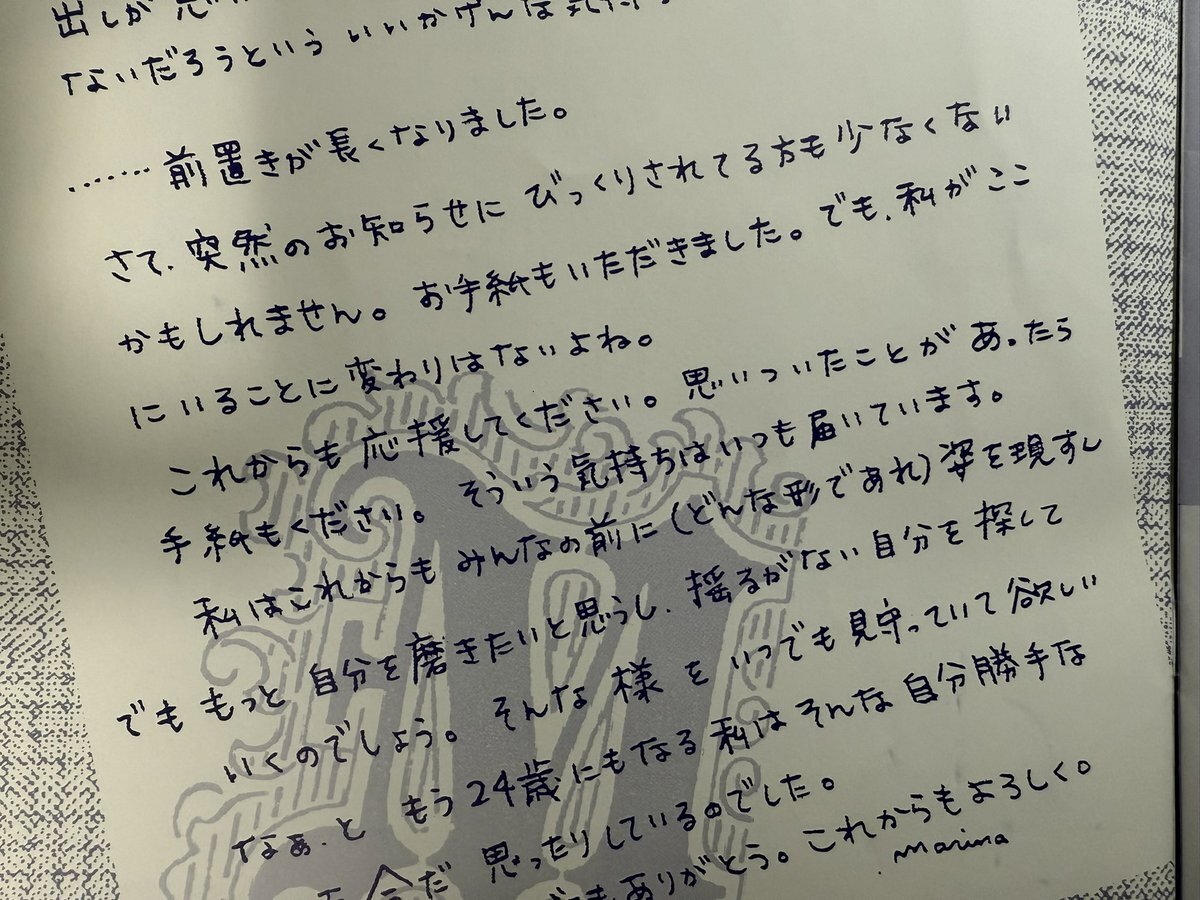 出しが
ないだろうという いいかげんな気持
……前置きが長くなりました。
さて、突然のお知らせに びっくりされてる方も少なくない
かもしれません。お手紙もいただきました。でも、私がここ
にいることに変わりはないよね。
これからも応援してください。思いついたことがあったら
手紙もください。そういう気持ちはいつも届いています。
私はこれからも みんなの前に(どんな形であれ)姿を現すし
でも もっと 自分を磨きたいと思うし、揺るがない自分を探して
いくのでしょう。そんな様を いつでも見守っていて欲しい
なぁ、と もう24歳にもなる私はそんな自分勝手な
だ 思ったりしているのでした。
ありがとう。これからもよろしく。
marina